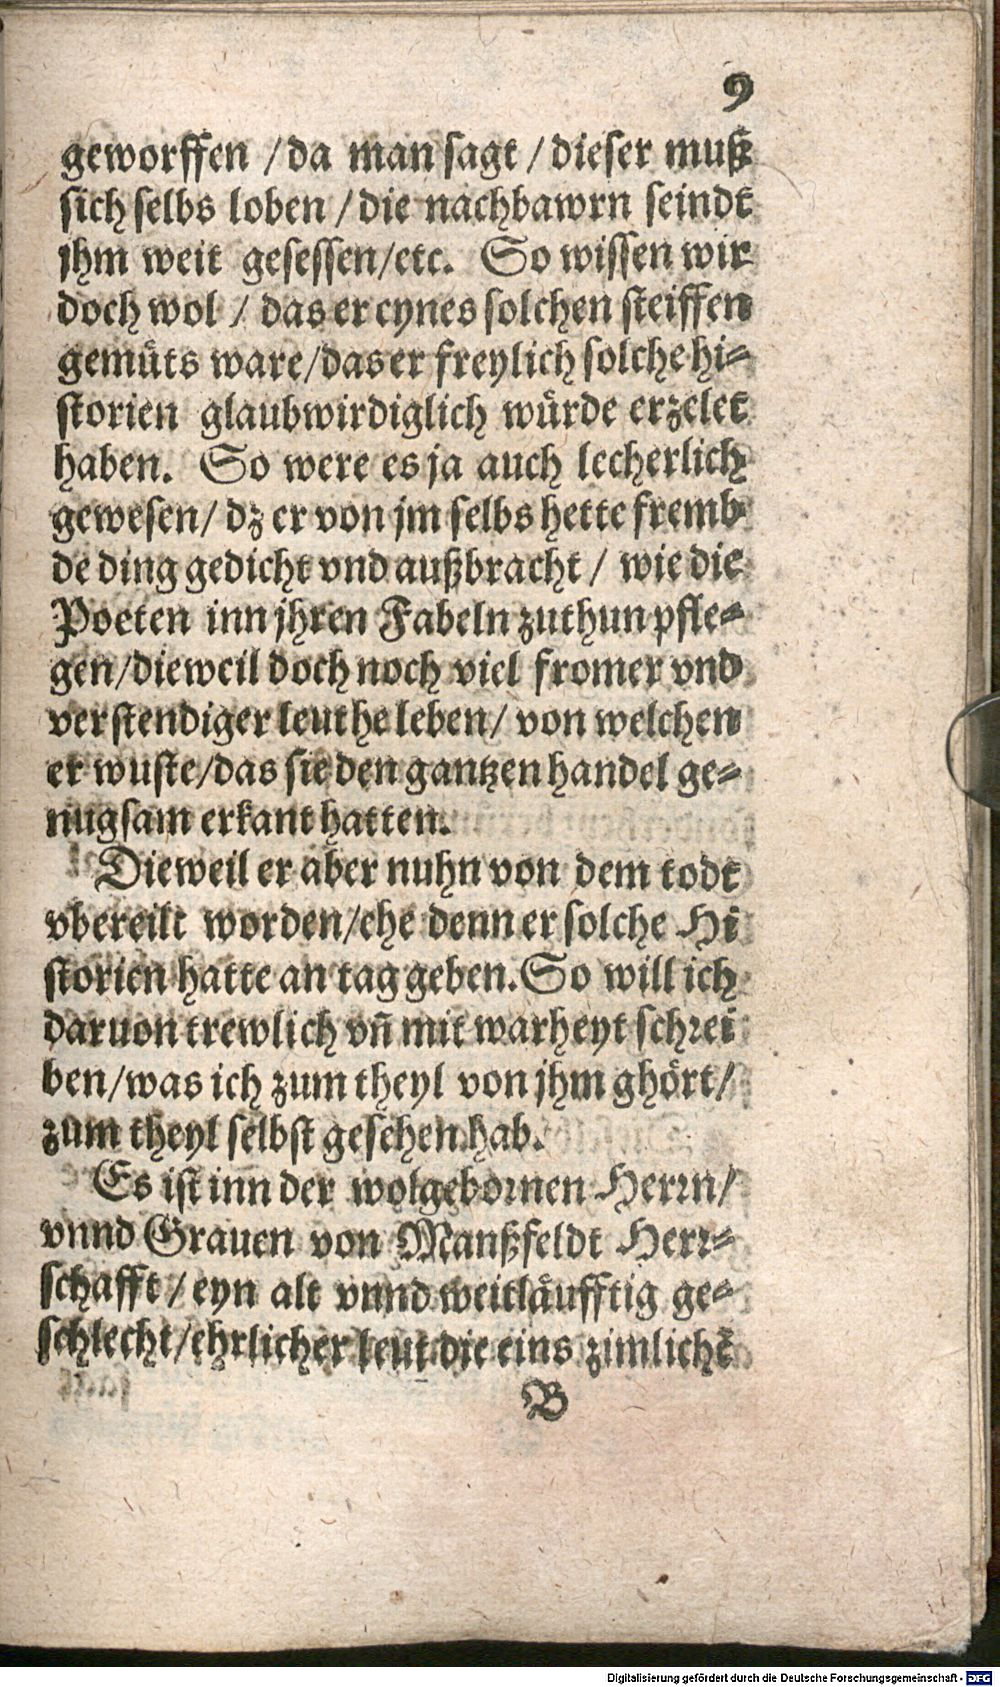 9
geworffen / da man sagt / dieser muß
sich selbs loben / die nachbawrn seindt
jhm weit gesessen/etc. So wissen wir
doch wol / das er eynes solchen steiffen
gemuͤts ware/das er freylich solche hi⸗
storien glaubwirdiglich wuͤrde erzelet
haben. So were es ja auch lecherlich
gewesen/ dz er von jm selbs hette fremb
de ding gedicht vnd außbracht / wie die
Poeten inn jhren Fabeln zuthun pfle⸗
gen/dieweil doch noch viel fromer vnd
verstendiger leuthe leben/ von welchen
er wuste/das sie den gantzen handel ge⸗
nugsam erkant hatten.
Dieweil er aber nuhn von dem todt
vbereilt worden/ehe denn er solche Hi
storien hatte an tag geben. So will ich
daruon trewlich vñ mit warheyt schrei
ben/was ich zum theyl von jhm ghoͤrt/
zum theyl selbst gesehen hab.
Es ist inn der wolgebornen Herrn/
vnnd Grauen von Manßfeldt Herr⸗
schafft / eyn alt vnnd weitlaͤufftig ge⸗
schlecht/ehrlicher leut die eins zimlichẽ
B
Digitalisierung gefördert durch die Deutsche Forschungsgemeinschaft - DFG